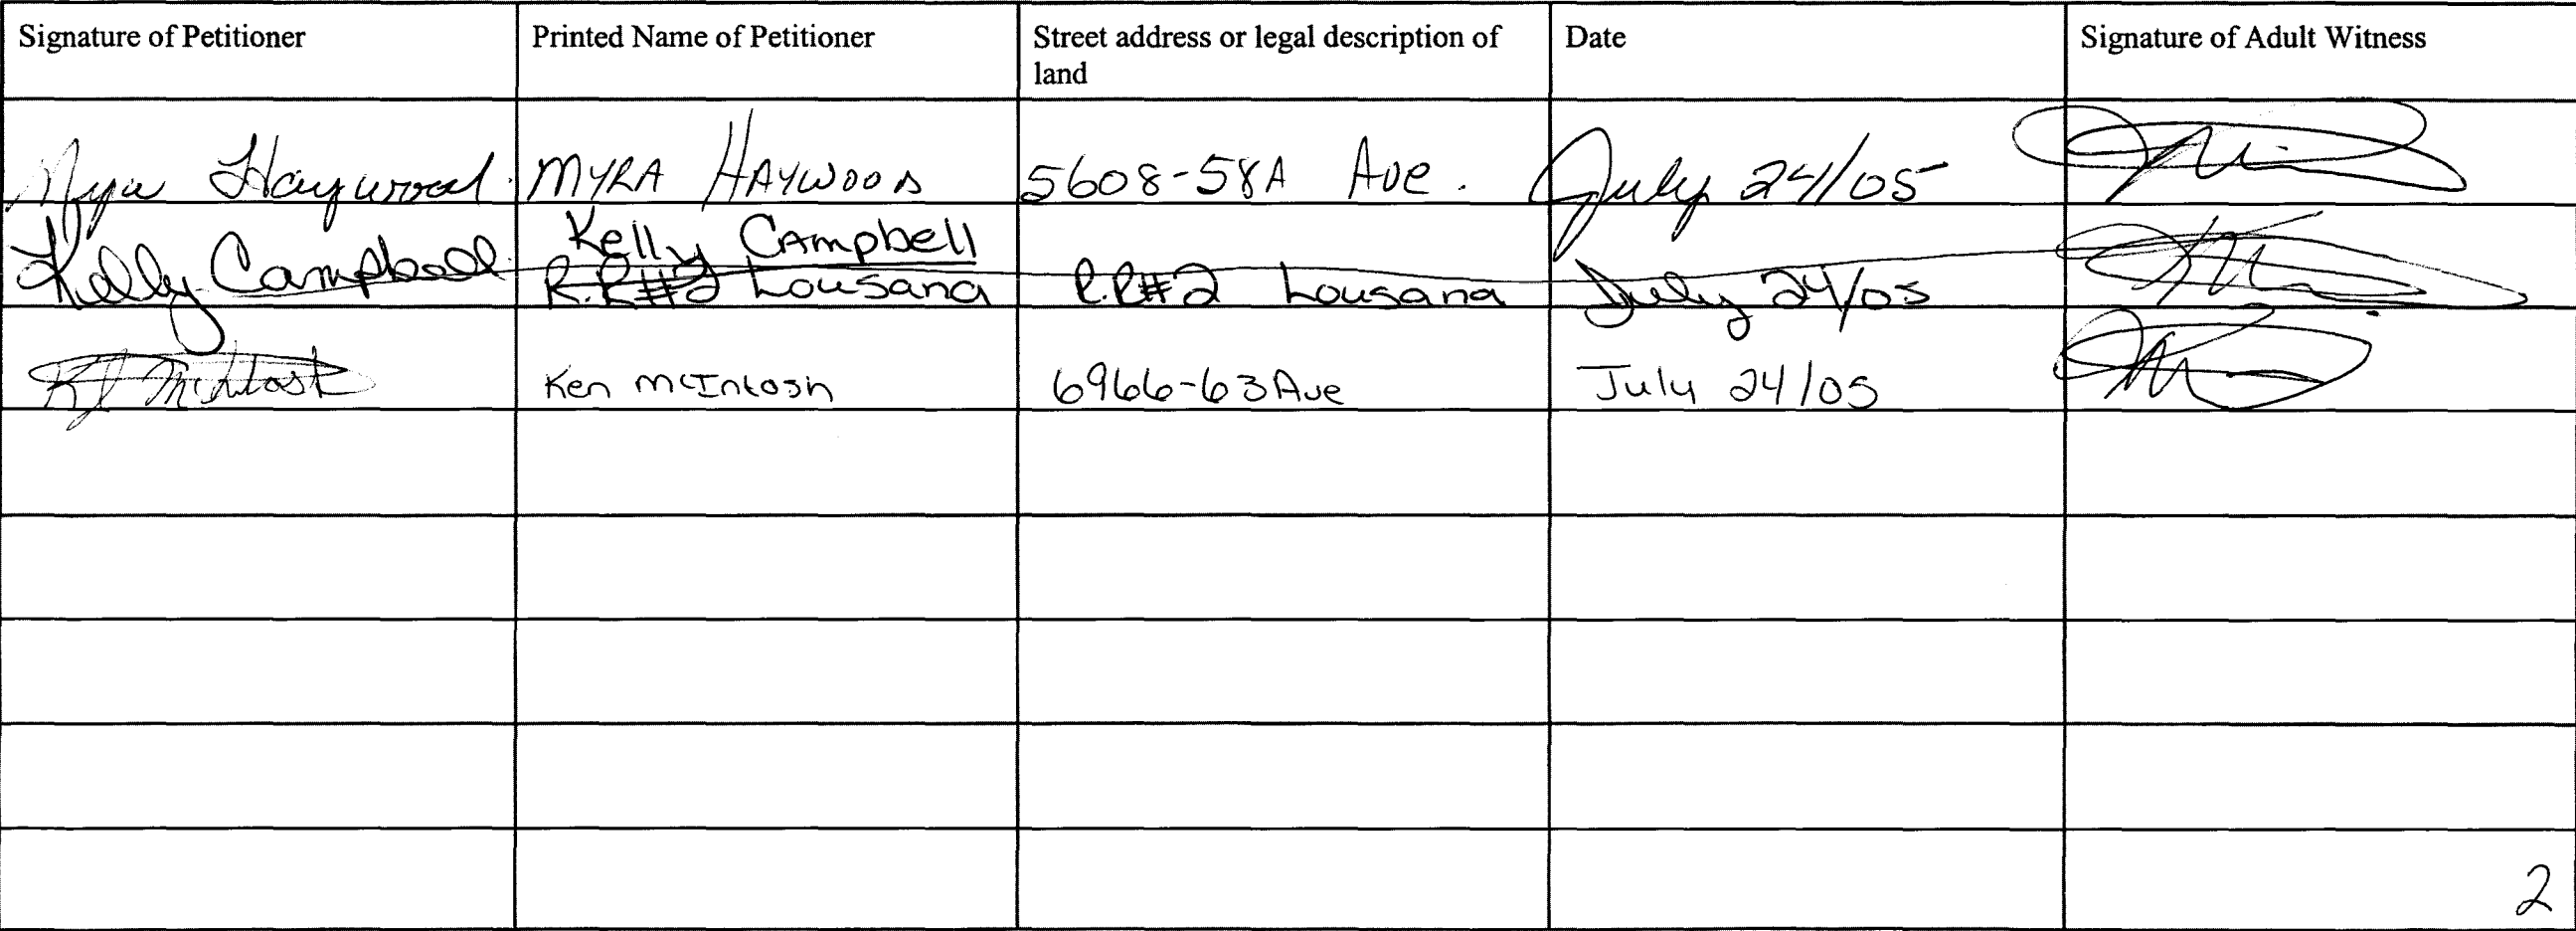 Signature of Petitioner
Printed Name of Petitioner
Street address or legal description of
land
Date
Signature of Adult Witness
Myra Haywood
MYRA HAYWOOD
5608-58A Ave.
July 24/05
Kelly Campbell
Kelly Campbell
R.R#2 Lousana
R.R#2 Lousana
July 24/05
KJ McIntosh
Ken McIntosh
6966-63 Ave
July 24/05
2